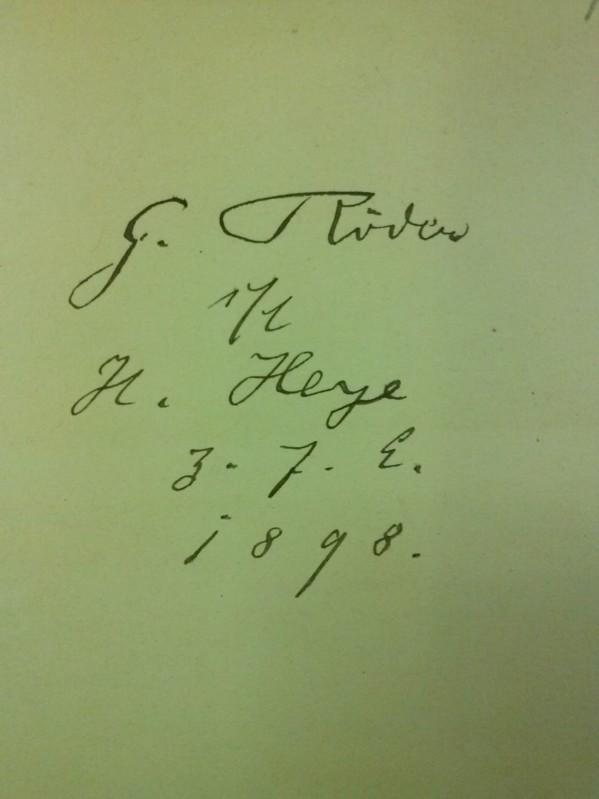 G. Röder
s/l
H. Heye
z. f. E.
1898.